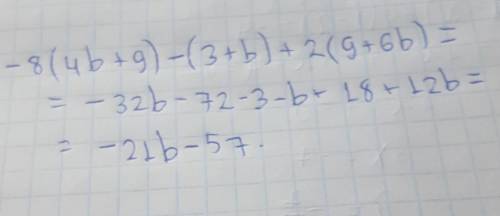 -8(4b+9)-(3+b)+2(9+6b)=
= -32b-72-3-b+18+12b=
= -21b-57.